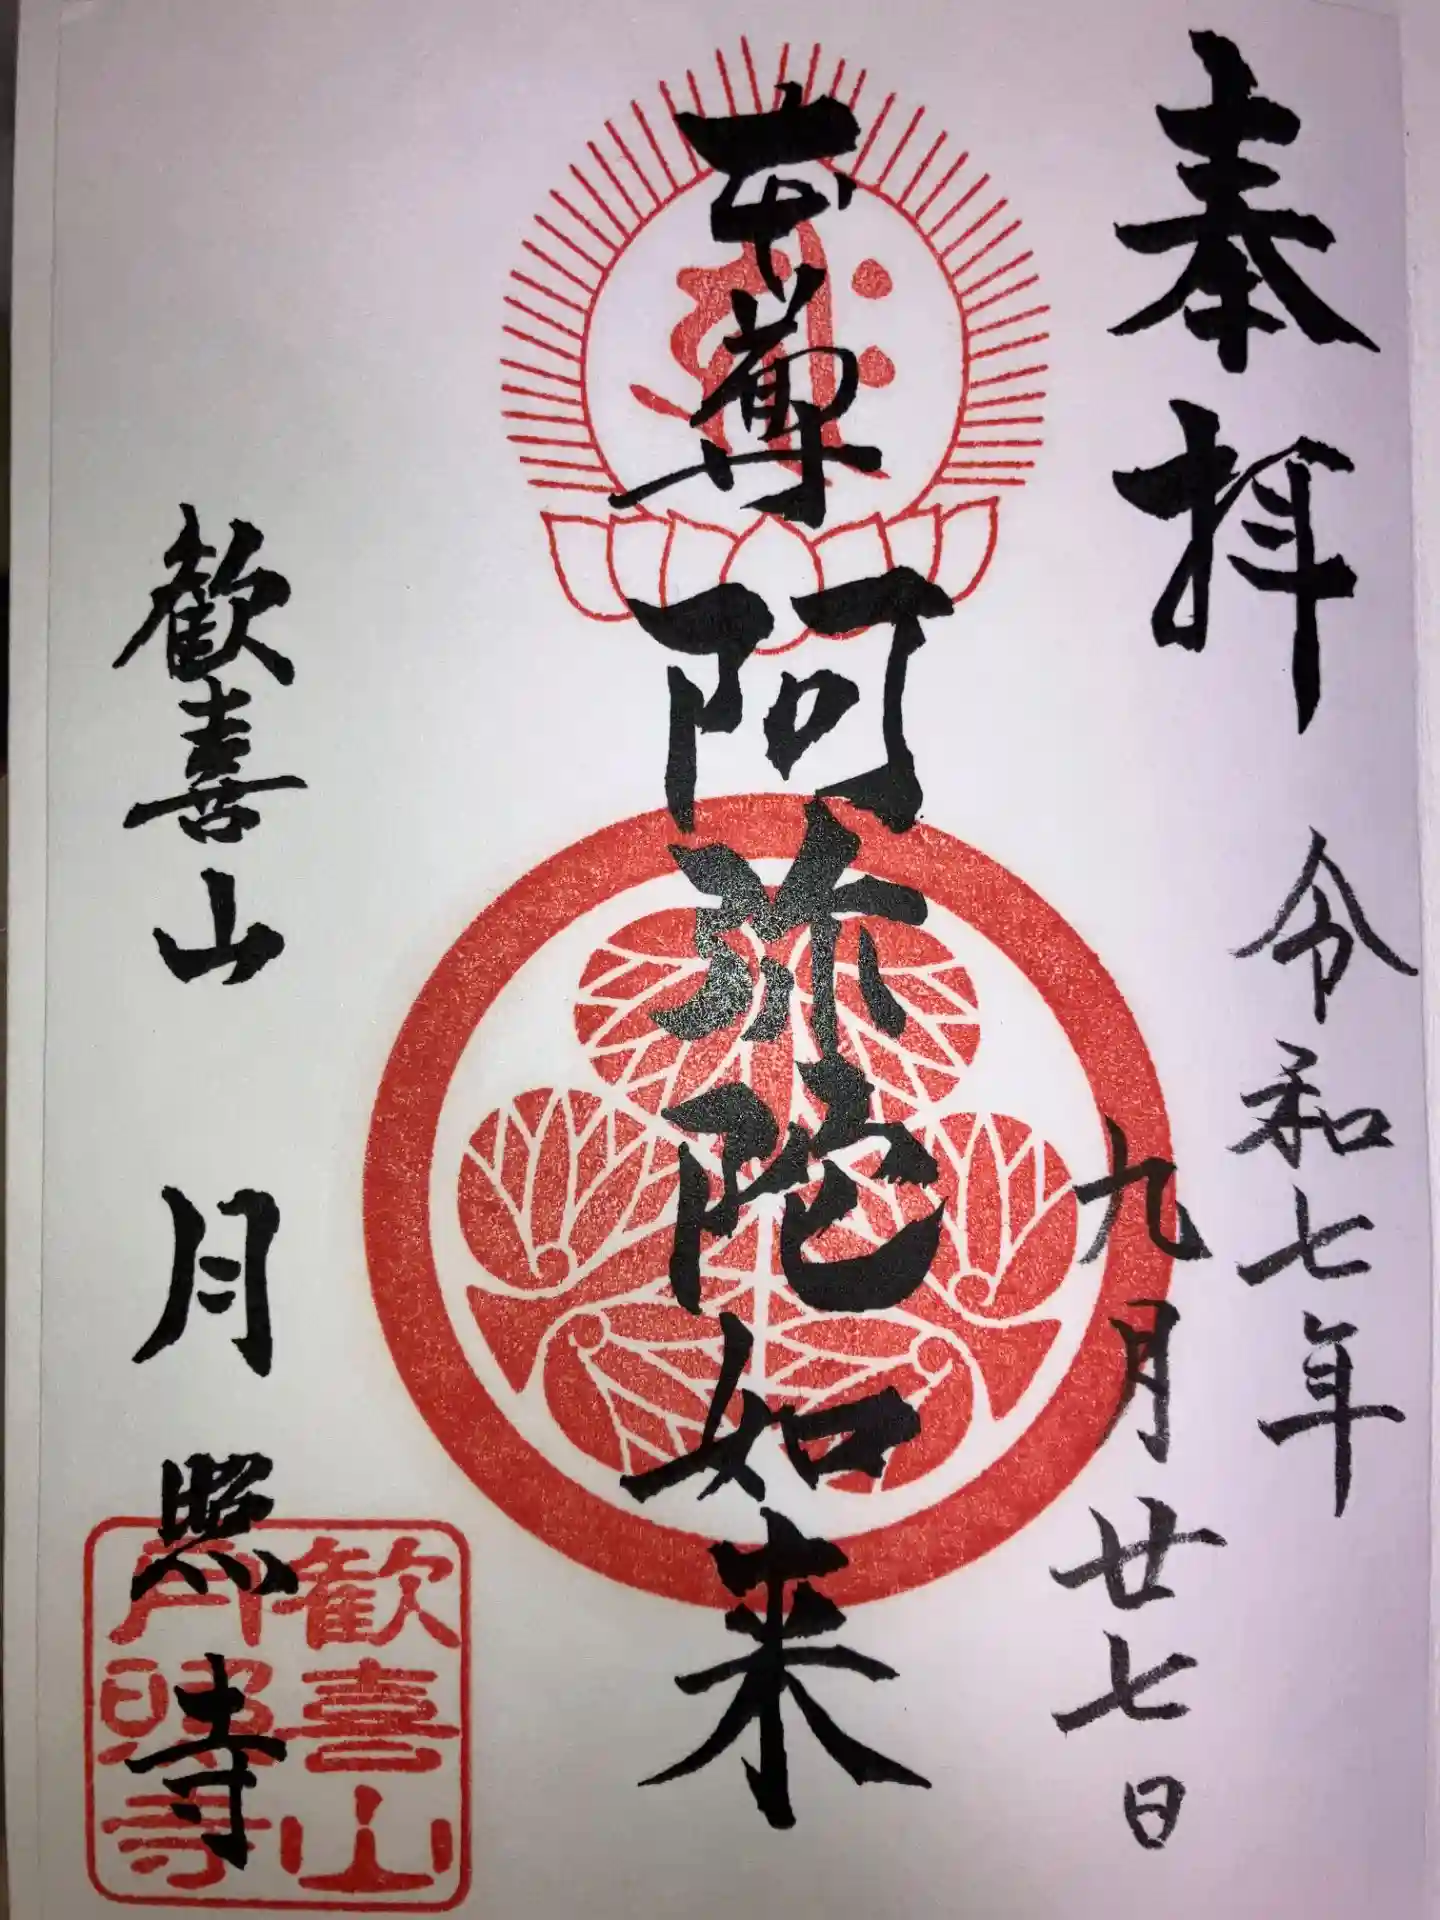 奉拝
令和七年
九月廿七日
本尊 阿弥陀如来
歓喜山 月照寺
歓喜山
月照寺